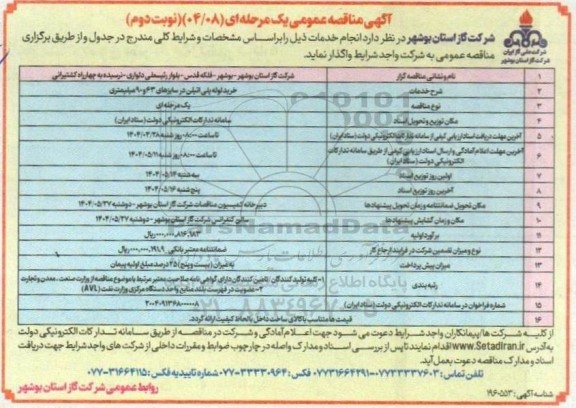 آگهی مناقصه عمومی یک مرحله ای (۰۴/۰۸) (نوبت دوم)
شرکت گاز استان بوشهر در نظر دارد انجام خدمات ذیل را براساس مشخصات و شرایط کلی مندرج در جدول و از طریق برگزاری
مناقصه عمومی به شرکت واجد شرایط واگذار نماید.
شرکت ملی گاز ایران
شرکت گاز استان بوشهر
۱ نام و نشانی مناقصه گزار شرکت گاز استان بوشهر - بوشهر - فلکه قدس - بلوار رئیسعلی دلواری - نرسیده به چهارراه کشتیرانی
۲ شرح خدمات خرید لوله پلی اتیلن در سایزهای ۶۳ و ۹۰ میلیمتری
۳ نوع مناقصه یک مرحله ای
۴ مکان توزیع و تحویل اسناد سامانه تدارکات الکترونیکی دولت (ستاد ایران)
۵ آخرین مهلت دریافت اسناد ارزیابی کیفی از سامانه تدارکات الکترونیکی دولت (ستاد ایران) تا ساعت ۰۸:۰۰ روز شنبه ۱۴۰۴/۰۴/۲۸
۶ آخرین مهلت اعلام آمادگی و ارسال اسناد ارزیابی کیفی از طریق سامانه تدارکات
الکترونیکی دولت (ستاد ایران) تا ساعت ۰۸:۰۰ روز شنبه ۱۴۰۴/۰۵/۱۱
۷ اولین روز توزیع اسناد سه شنبه ۱۴۰۴/۰۵/۱۴
۸ آخرین روز توزیع اسناد پنج شنبه ۱۴۰۴/۰۵/۱۶
۹ مکان تحویل ضمانتنامه و زمان تحویل پیشنهادها دبیرخانه کمیسیون مناقصات شرکت گاز استان بوشهر - دوشنبه ۱۴۰۴/۰۵/۲۷
۱۰ مکان و زمان گشایش پیشنهادها سالن کنفرانس شرکت گاز استان بوشهر - دوشنبه ۱۴۰۴/۰۵/۲۷
۱۱ برآورد اولیه ریال
۱۲ نوع و میزان تضمین شرکت در فرایند ارجاع کار ضمانتنامه معتبر بانکی ریال
۱۳ میزان پیش پرداخت به میزان (بیست و پنج) ۲۵ درصد مبلغ اولیه پیمان
۱۴ رتبه بندی ۱- کلیه تولید کنندگان/تامین کنندگان دارای گواهی نامه صلاحیت معتبر مرتبط با موضوع مناقصه از وزارت صنعت، معدن و تجارت
۲- عضویت در فهرست بلند منابع واحد دستگاه مرکزی وزارت نفت (AVL)
۱۵ شماره فراخوان در سامانه تدارکات الکترونیکی دولت (ستاد ایران)
۱۶ قیمت ها متناسب با کالای ساخت داخل با لحاظ کیفیت ارائه گردد.
از کلیه شرکت ها/پیمانکاران واجد شرایط دعوت می شود جهت اعلام آمادگی و شرکت در مناقصه از طریق سامانه تدارکات الکترونیکی دولت
به آدرس www.SetadIran.ir اقدام نمایند تا پس از بررسی اسناد و مدارک واصله در چارچوب ضوابط و مقررات داخلی از شرکت های واجد شرایط جهت دریافت
اسناد و مدارک مناقصه دعوت بعمل آید.
تلفن تماس: ۰۷۷۳۳۳۳۷۶۰۳-۰۷۷۳۱۶۶۴۲۹۱ فکس: ۰۷۷-۳۳۳۳۰۹۶۴ شماره تاییدیه فکس: ۰۷۷-۳۱۶۶۴۱۱۵
شناسه آگهی: ۱۹۶۰۵۵۳
روابط عمومی شرکت گاز استان بوشهر
ParsNamadData
۰۲۱-۸۸۳۴۹۶۷۰